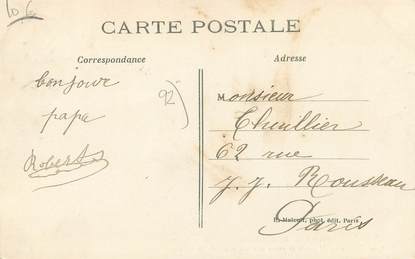 10 6
CARTE POSTALE
Correspondance
Adresse
bonjour
papa
Robert
92
Monsieur
Thuillier
62 rue
J. J. Rousseau
phot. édit. Paris
Paris